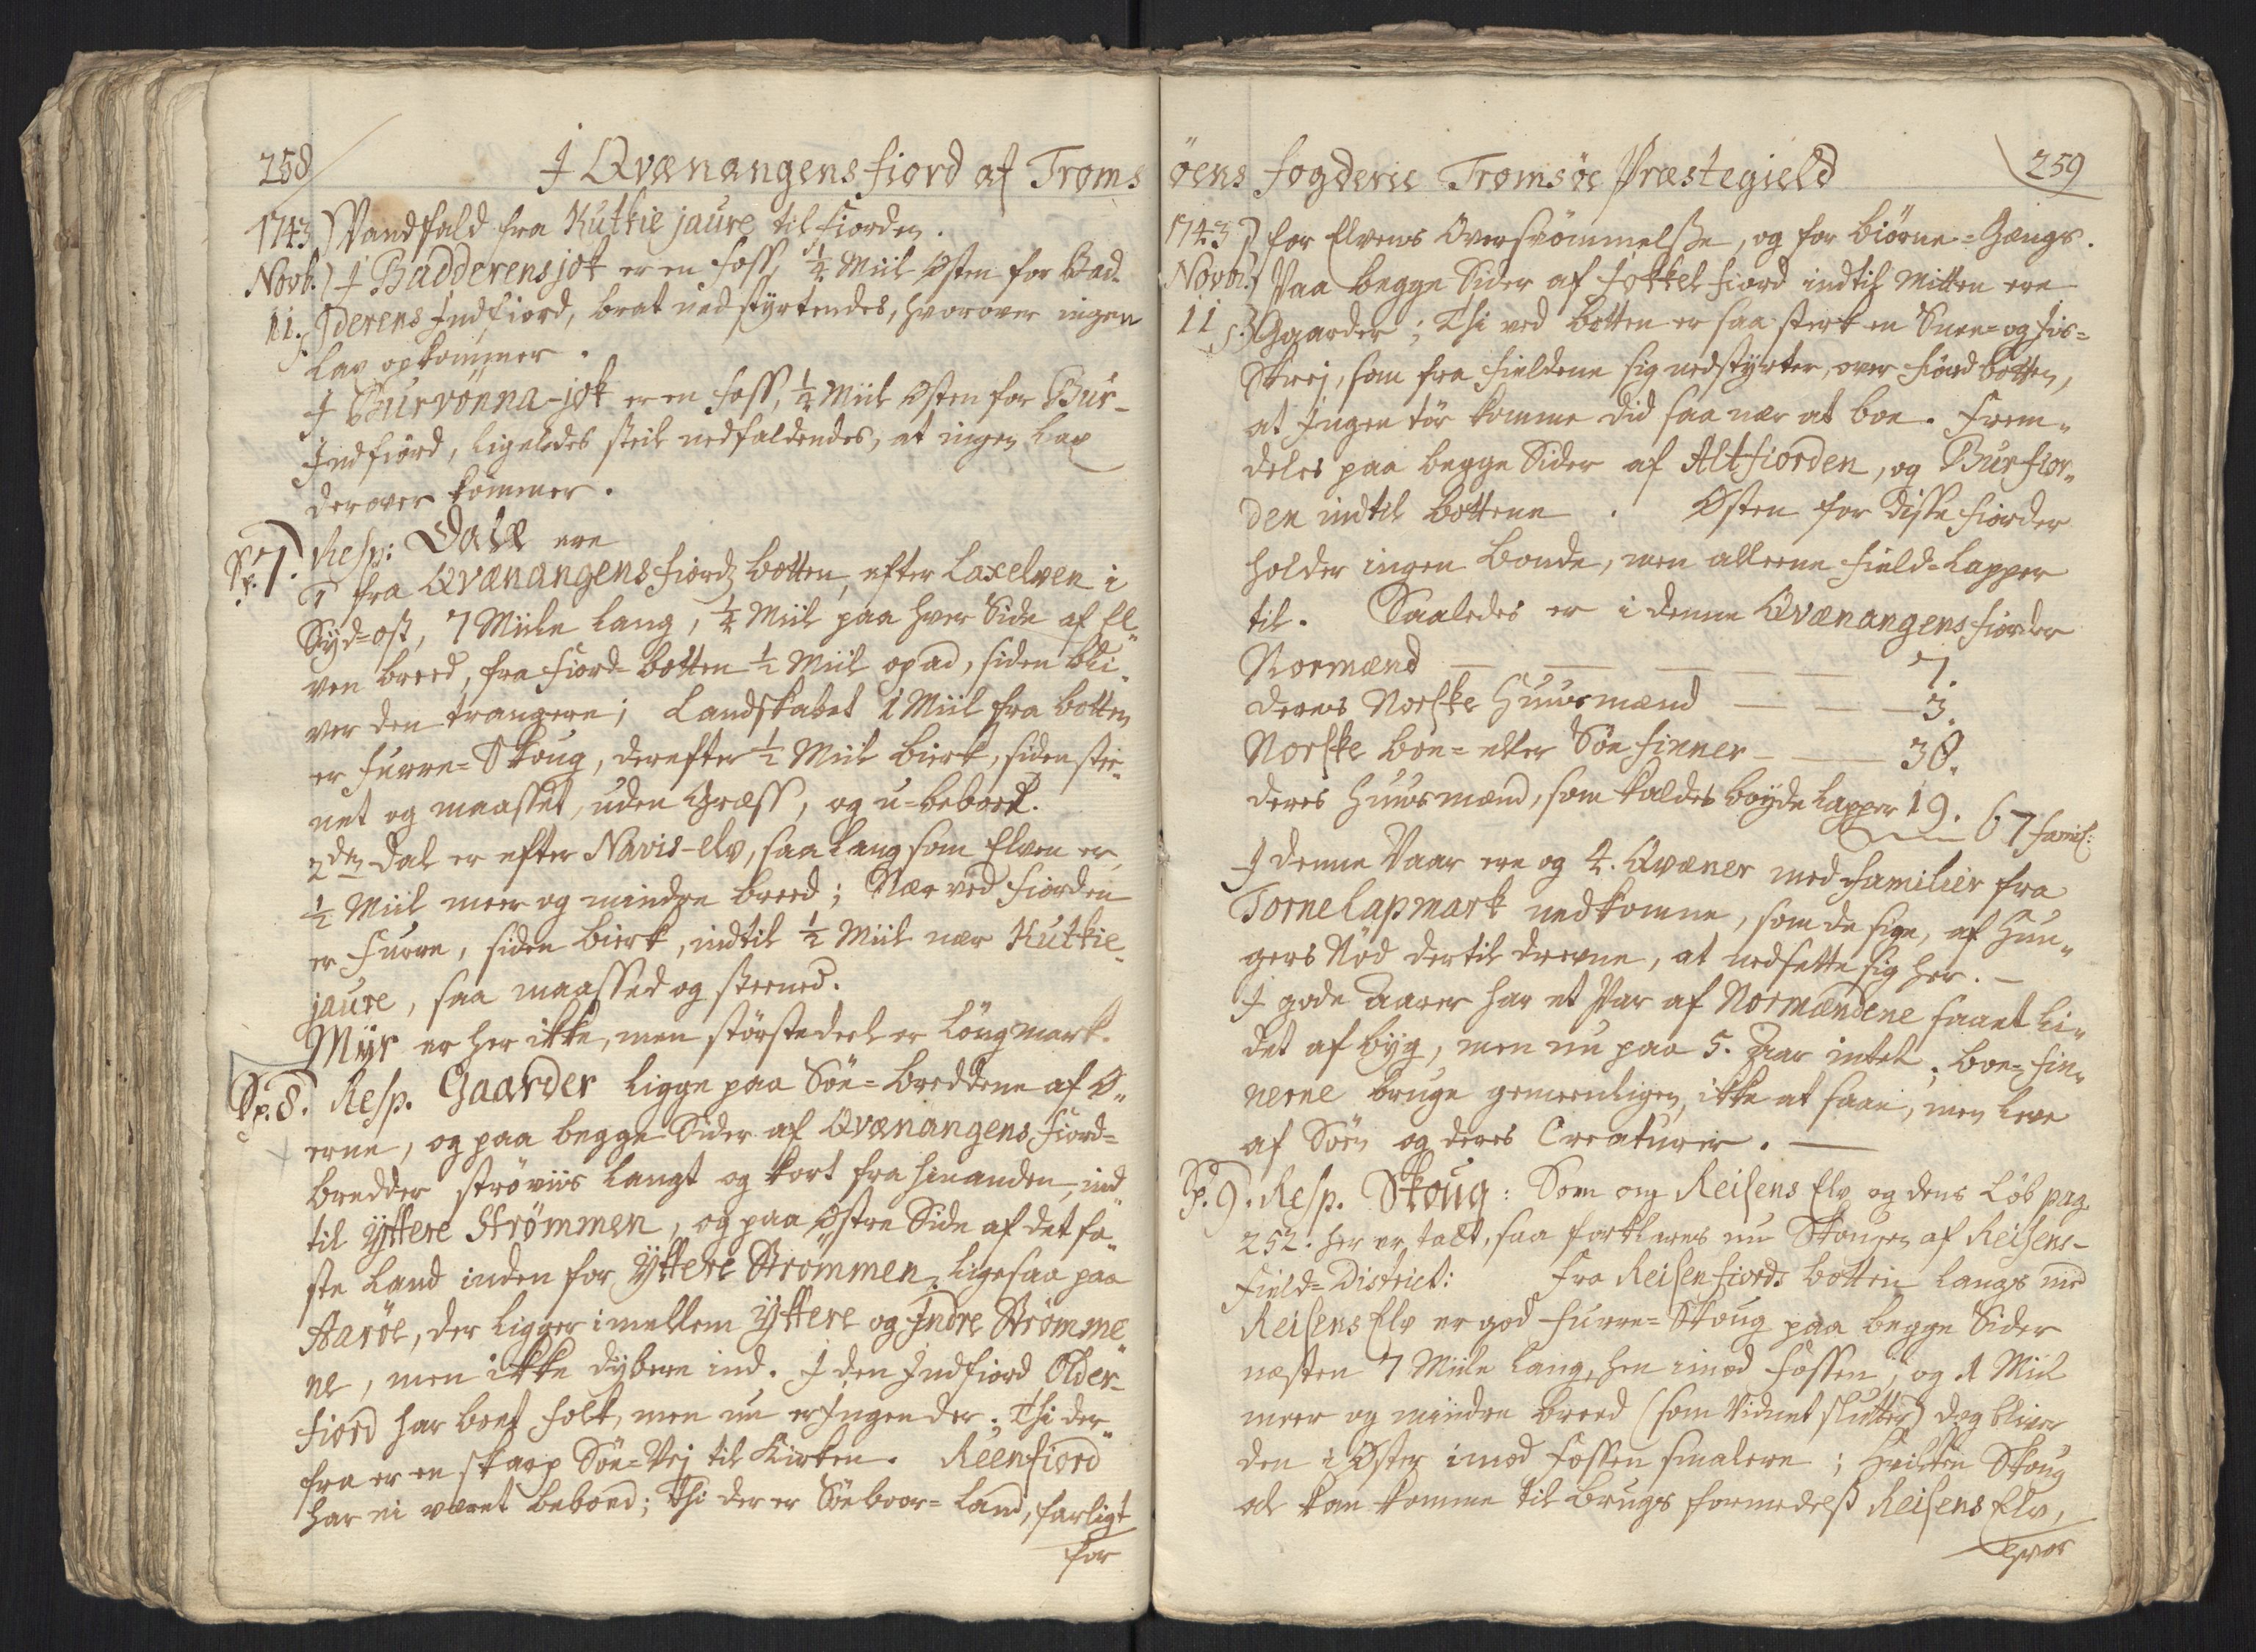 258
I Qvænangensfiord af Troms
1743) Vandfald fra Kutkiejaure til Fiorden.
Novb.) I Badderensjok er en Foss, ¼ Miil Østen for Bad-
11.) derens Indfiord, brat nedstyrtendes, hvorover ingen
Lax opkommer.
I Burvonna-jok er en Foss, ¼ Miil Østen for Bur-
Indfiord, ligeledes steil nedfaldendes, at ingen Lax
derover kommer.
Sp. 7. Resp: Dale ere
1 fra Qvænangensfiords botten, efter Laxelven i
Syd-ost, 7 Miile lang, ¼ Miil paa hver Side af El-
ven breed, fra Fiord-botten ½ Miil opad, siden bli-
ver den trangere; Landskabet 1 Miil fra botten
er Furre-Skoug, derefter ½ Miil birk, siden stee-
net og maasset, uden Græss, og u-beboed.
2den Dal er efter Navis-elv, saa lang som Elven er,
½ Miil meer og mindre breed; Nær ved Fiorden
er Furre, siden birk, indtil ½ Miil nær Kutkie-
jaure, saa maassed og steened.
Myr er her ikke, men størstedeel er Löngmark.
Sp. 8. Resp. Gaarder ligge paa Söe-breddene af Ø-
erne, og paa begge Sider af Qvænangens Fiord-
bredder strøviis langt og kort fra hinanden, ind
til Yttere Strømmen, og paa Østre Side af det fa-
ste Land inden for Yttere Strømmen, ligesaa paa
Aaröe, der ligger imellem Yttere og Indre Strømme-
ne, men ikke dybere ind. I den Indfiord Older-
fiord har boet folk, men nu er Ingen der; Thi der-
fra er en skarp Söe-Vej til Kirken. Reenfiord
har ei været beboed; Thi der er Söeboor-Land, farligt
for
öens Fogderie Tromsöe Præstegield
259
1743) for Elvens Oversvömmelse, og for biörne-Gangs.
Novbr.) Paa begge Sider af Jøkkelfiord indtil Mitten ere
11.) Gaarder; Thi ved botten er saa sterk en Snee- og Jis-
Skrej, som fra Fieldene sig nedstyrter, over Fiordbotten,
at Ingen tör komme did saa nær at boe. Frem-
deles paa begge Sider af Altfiorden, og Burfior-
den indtil bottene. Østen for disse Fiorder
holder ingen bonde, men alleene Field-Lapper
til. Saaledes er i denne Qvænangens Fiorder
Normænd — — — — 7.
deres Norske Huusmænd — — — 3.
Norske boe- eller Söe Finner — — 38.
deres Huusmænd, som kaldes boyde Lapper 19. 67 famil:
I denne Vaar ere og 4. Qvæner med Familier fra
Tornelapmark nedkomne, som de sige, af Hun-
gers Nød dertil drevne, at nedsette sig her. —
I gode Aarer har et Par af Normændene saaet li-
det af byg, men nu paa 5. Aar intet. boe-Fin-
nerne bruge gemeenligen ikke at saae, men leve
af Söen og deres Creaturer. —
Sp. 9. Resp. Skoug: Som om Reisens Elv og dens Löb pag.
252. her er talt, saa forklares nu Skougen af Reisens-
Field-District: Fra Reisenfiords botten langs med
Reisens Elv er god Furre-Skoug paa begge Sider
næsten 7 Miile lang, hen imod Fossen, og 1 Miil
meer og mindre breed (som Vidnet slutter) dog bliver
den i Øster imod Fossen smalere; hvilken Skoug
al kan komme til brugs formedelst Reisens Elv,
hvor